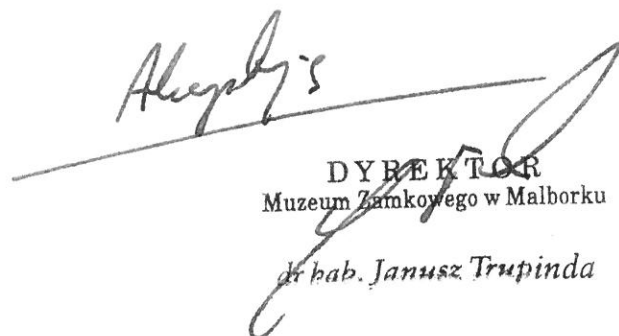 Akceptuję
DYREKTOR
Muzeum Zamkowego w Malborku
dr hab. Janusz Trupinda